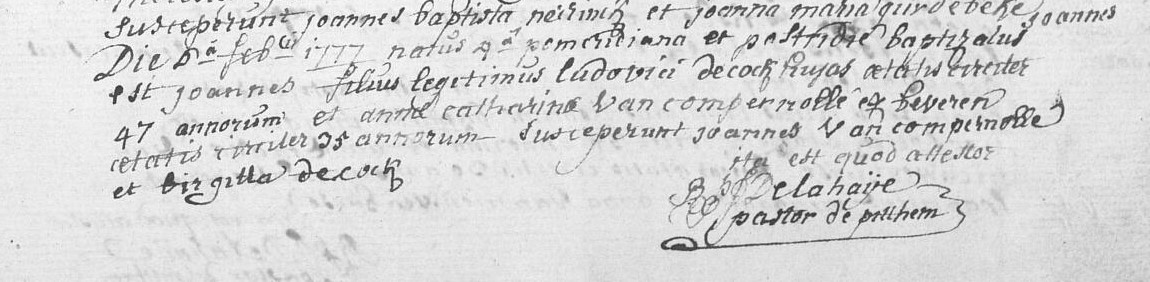 susceperunt joannes baptista neirinck et joanna maria
Die 6ᵃ febᵘ 1777 natus 4ᵃ pomeridiana et postridie baptizatus joannes
est joannes filius legitimus ludovici decock hujas ætatis circiter
47 annorum et annæ catharinæ Van compernolle ex beveren
ætatis circiter 35 annorum susceperunt joannes Van compernolle
et birgitta decock
ita est quod attestor
Delahaije
pastor de pitthem